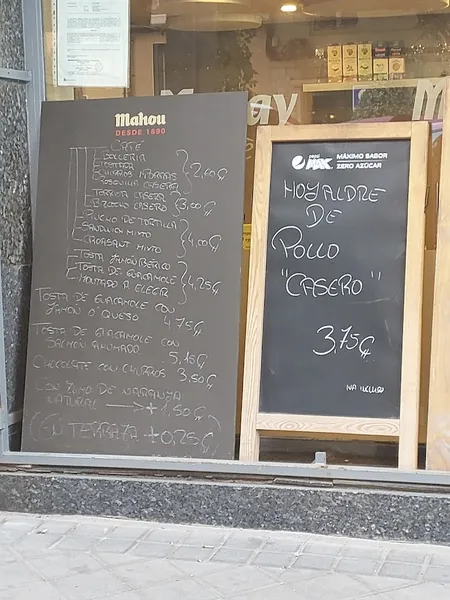 Mahou
DESDE 1890
CAFÉ
BOLLERIA
TOSTADA
CHURROS PORRAS
ROSQUILLA CASERA
2,60€
TORRIJA CASERA
BIZCOCHO CASERO
3,00€
PINCHO DE TORTILLA
SANDWICH MIXTO
CROASANT MIXTO
4,00€
TOSTA JAMON IBÉRICO
TOSTA DE GUACAMOLE
MONTADO A ELEGIR
4,25€
TOSTA DE GUACAMOLE CON
JAMON O QUESO 4,75€
TOSTA DE GUACAMOLE CON
SALMON AHUMADO
5,15€
CHOCOLATE CON CHURROS 3,50€
CON ZUMO DE NARANJA
NATURAL → + 1,50€
(EN TERRAZA + 0,25€)
pepsi MAX
MÁXIMO SABOR
ZERO AZÚCAR
HOJALDRE
DE
POLLO
"CASERO"
3,75€
IVA INCLUIDO